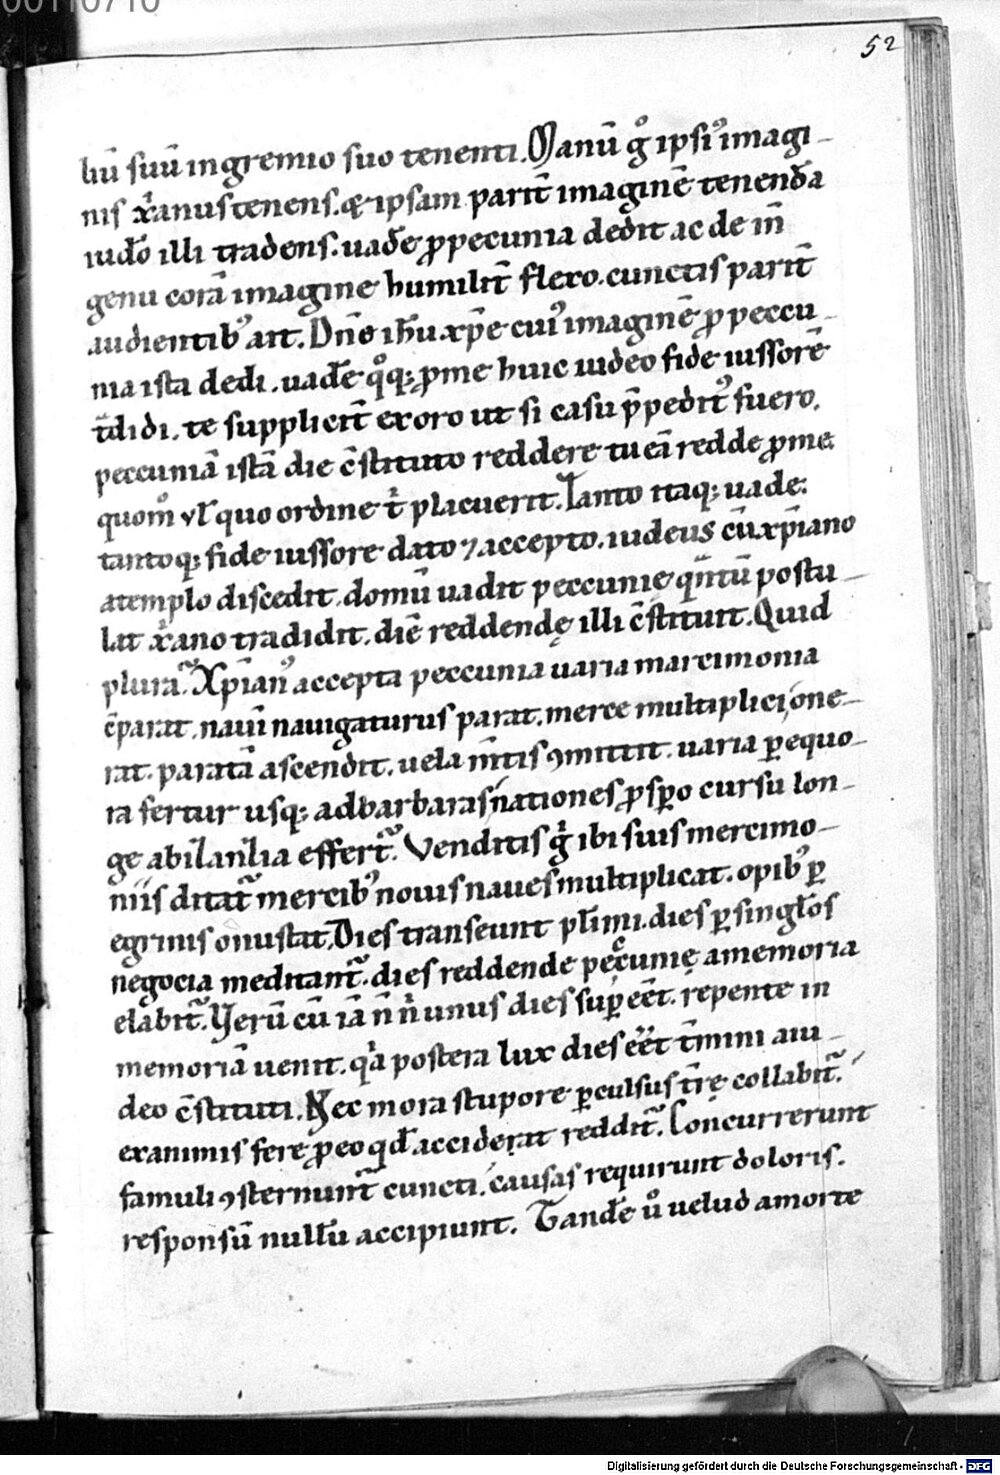 00110710
52
liū suū in gremio suo tenenti. Manū g̊ ipsiꝰ imagi-
nis xp̄ianus tenens. & ipsam parit̄ imaginē tenendā
iudeo illi tradens. uadē ꝓ pecunia dedit ac de in̄
genu corā imagine humilit̄ flexo. cunctis parit̄
audientibꝰ ait. Dn̄e ih̄u xp̄e cuiꝰ imaginē ꝓ peccu-
nia ista dedi. uadē q̊q; ꝓ me huic iudeo fide iussorē
t̄didi. te supplicit̄ exoro ut si casu p̄peditꝰ fuero.
peccuniā istā die c̄stituto reddere tu eā redde ꝓ me
quom̊ vl̄ quo ordine t̄ placuerit. Tanto itaq; uade.
tantoq; fide iussore dato ⁊ accepto. iudeus cū xp̄iano
a templo discedit. domū uadit peccunię qn̄tū postu-
lat xp̄iano tradidit. diē reddendę illi c̄stituit. Quid
plura. Xp̄ianꝰ accepta peccunia uaria marcimonia
c̄parat. nauī nauigaturus parat. merce multiplici one-
rat. paratā ascendit. uela uentis ꝯmittit. uaria ꝑ equo-
ra fertur usq; ad barbaras nationes ꝓspo cursu lon-
ge ab italia effert᷑. Venditis g̊ ibi suis mercimo-
niis ditat᷑ mercibꝰ nouis naues multiplicat. opibꝰ ꝑ
egrinis onustat. Dies transeunt pl̄imi. dies ꝑ singlōs
negocia meditant᷑. dies reddende peccunię a memoria
elabit᷑. Verū cū iā n̄ n̄ unus dies suꝑ eēt. repente in
memoriā uenit. qa postera lux dies eēt t̄mini a iu-
deo c̄stituti. Nec mora stupore ꝑculsus t̄rę collabit᷑.
exanimis fere ꝓ eo qd̄ acciderat reddit᷑. Concurrerunt
famuli ꝯsternunt᷑ cuncti. causas requirunt doloris.
responsū nullū accipiunt. Tandē ů uelud a morte
Digitalisierung gefördert durch die Deutsche Forschungsgemeinschaft - DFG